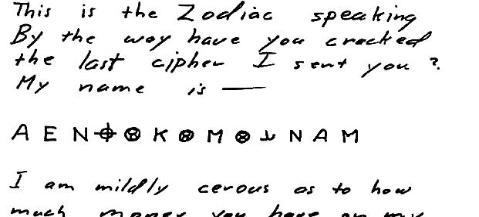 This is the Zodiac speaking
By the way have you cracked
the last cipher I sent you?
My name is —
A E N ⌖ ⊗ K ⊗ M ⊗ ⅃ N A M
I am mildly cerous as to how
much money you have on my